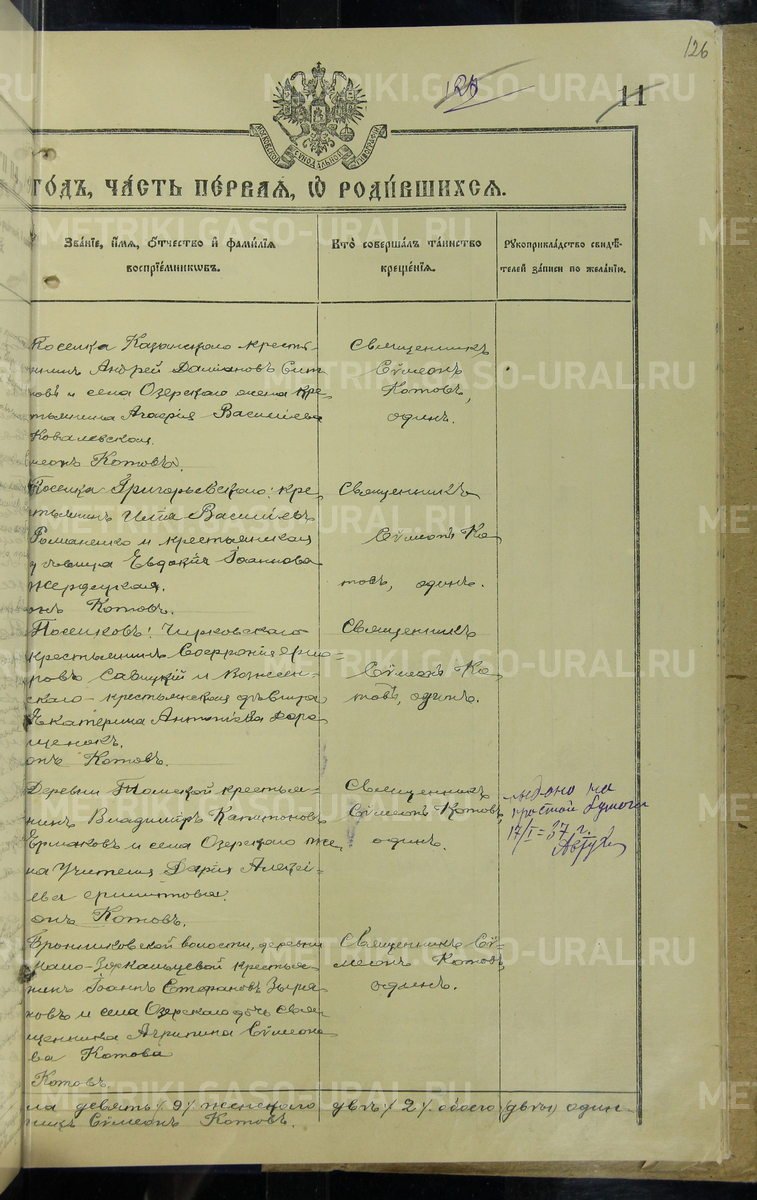 126
11
МОСКОВСКОЙ СѴНОДАЛЬНОЙ ТИПОГРАФІИ
го́дъ, ча́сть пе́рваѧ, ѡ҆ роди́вшихсѧ.
Зва́нїе, и҆́мѧ, ѻ҆́тчество и҆ фами́лїѧ
воспрїе́мникѡвъ.
Кто̀ соверша́лъ та́инство
креще́нїѧ.
Рꙋкоприкла́дство свидѣ́-
телей за́писи по жела́нїю.
Поселка Казанскаго кресть-
янинъ Андрей Даміановъ Сит
новъ и села Озерскаго жена кре
стьянина Агафія Васильева
Ковалевская.
меонъ Котовъ.
Священникъ
Сѵмеонъ
Котовъ,
одинъ.
Поселка Григорьевскаго: кре
стьянинъ Илія Васильевъ
Романенко и крестьянская
дѣвица Евдокія Іоаннова
Жердецкая.
онъ Котовъ.
Священникъ
Сѵмеонъ Ко
товъ, одинъ.
Поселковъ: Чирковскаго
крестьянинъ Софроній
Савицкій и Вознесен-
скаго - крестьянская дѣвица
Екатерина Антоніева Доро
щенокъ.
онъ Котовъ.
Священникъ
Сѵмеонъ Ко
товъ, одинъ.
Деревни Томской крестья-
нинъ Владиміръ Капитоновъ
Ермаковъ и села Озерскаго же
на учителя Дарія Алексі-
ева
онъ Котовъ.
Священникъ
Сѵмеонъ Котовъ,
одинъ.
выдано на
простой бумаге
17/I=37 г.
Бронниковской волости, деревни
Мало-Зоркальцевой крестья-
нинъ Іоаннъ Стефановъ Зыря
новъ и села Озерскаго дочь свя
щенника Агрипина Сѵмеоно
ва Котова
Котовъ.
Священникъ Сѵ
меонъ Котовъ,
одинъ.
ла девять /9/ женскаго двѣ /2/ обоего (двухъ) один-
никъ Сѵмеонъ Котовъ.
METRIKI.GASO-URAL.RU